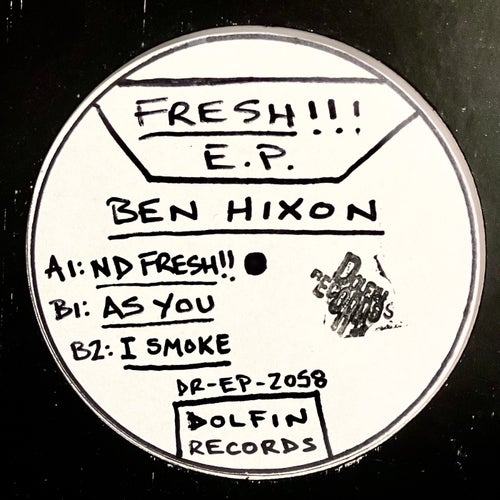 FRESH!!!
E.P.
BEN HIXON
A1: ND FRESH!!
B1: AS YOU
B2: I SMOKE
DOLFIN
RECORDS
DR-EP-2058
DOLFIN
RECORDS